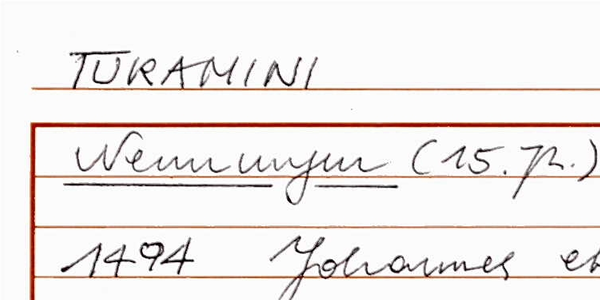 TURAMINI
Nennungen (15. Jh.)
1494 Johannes et